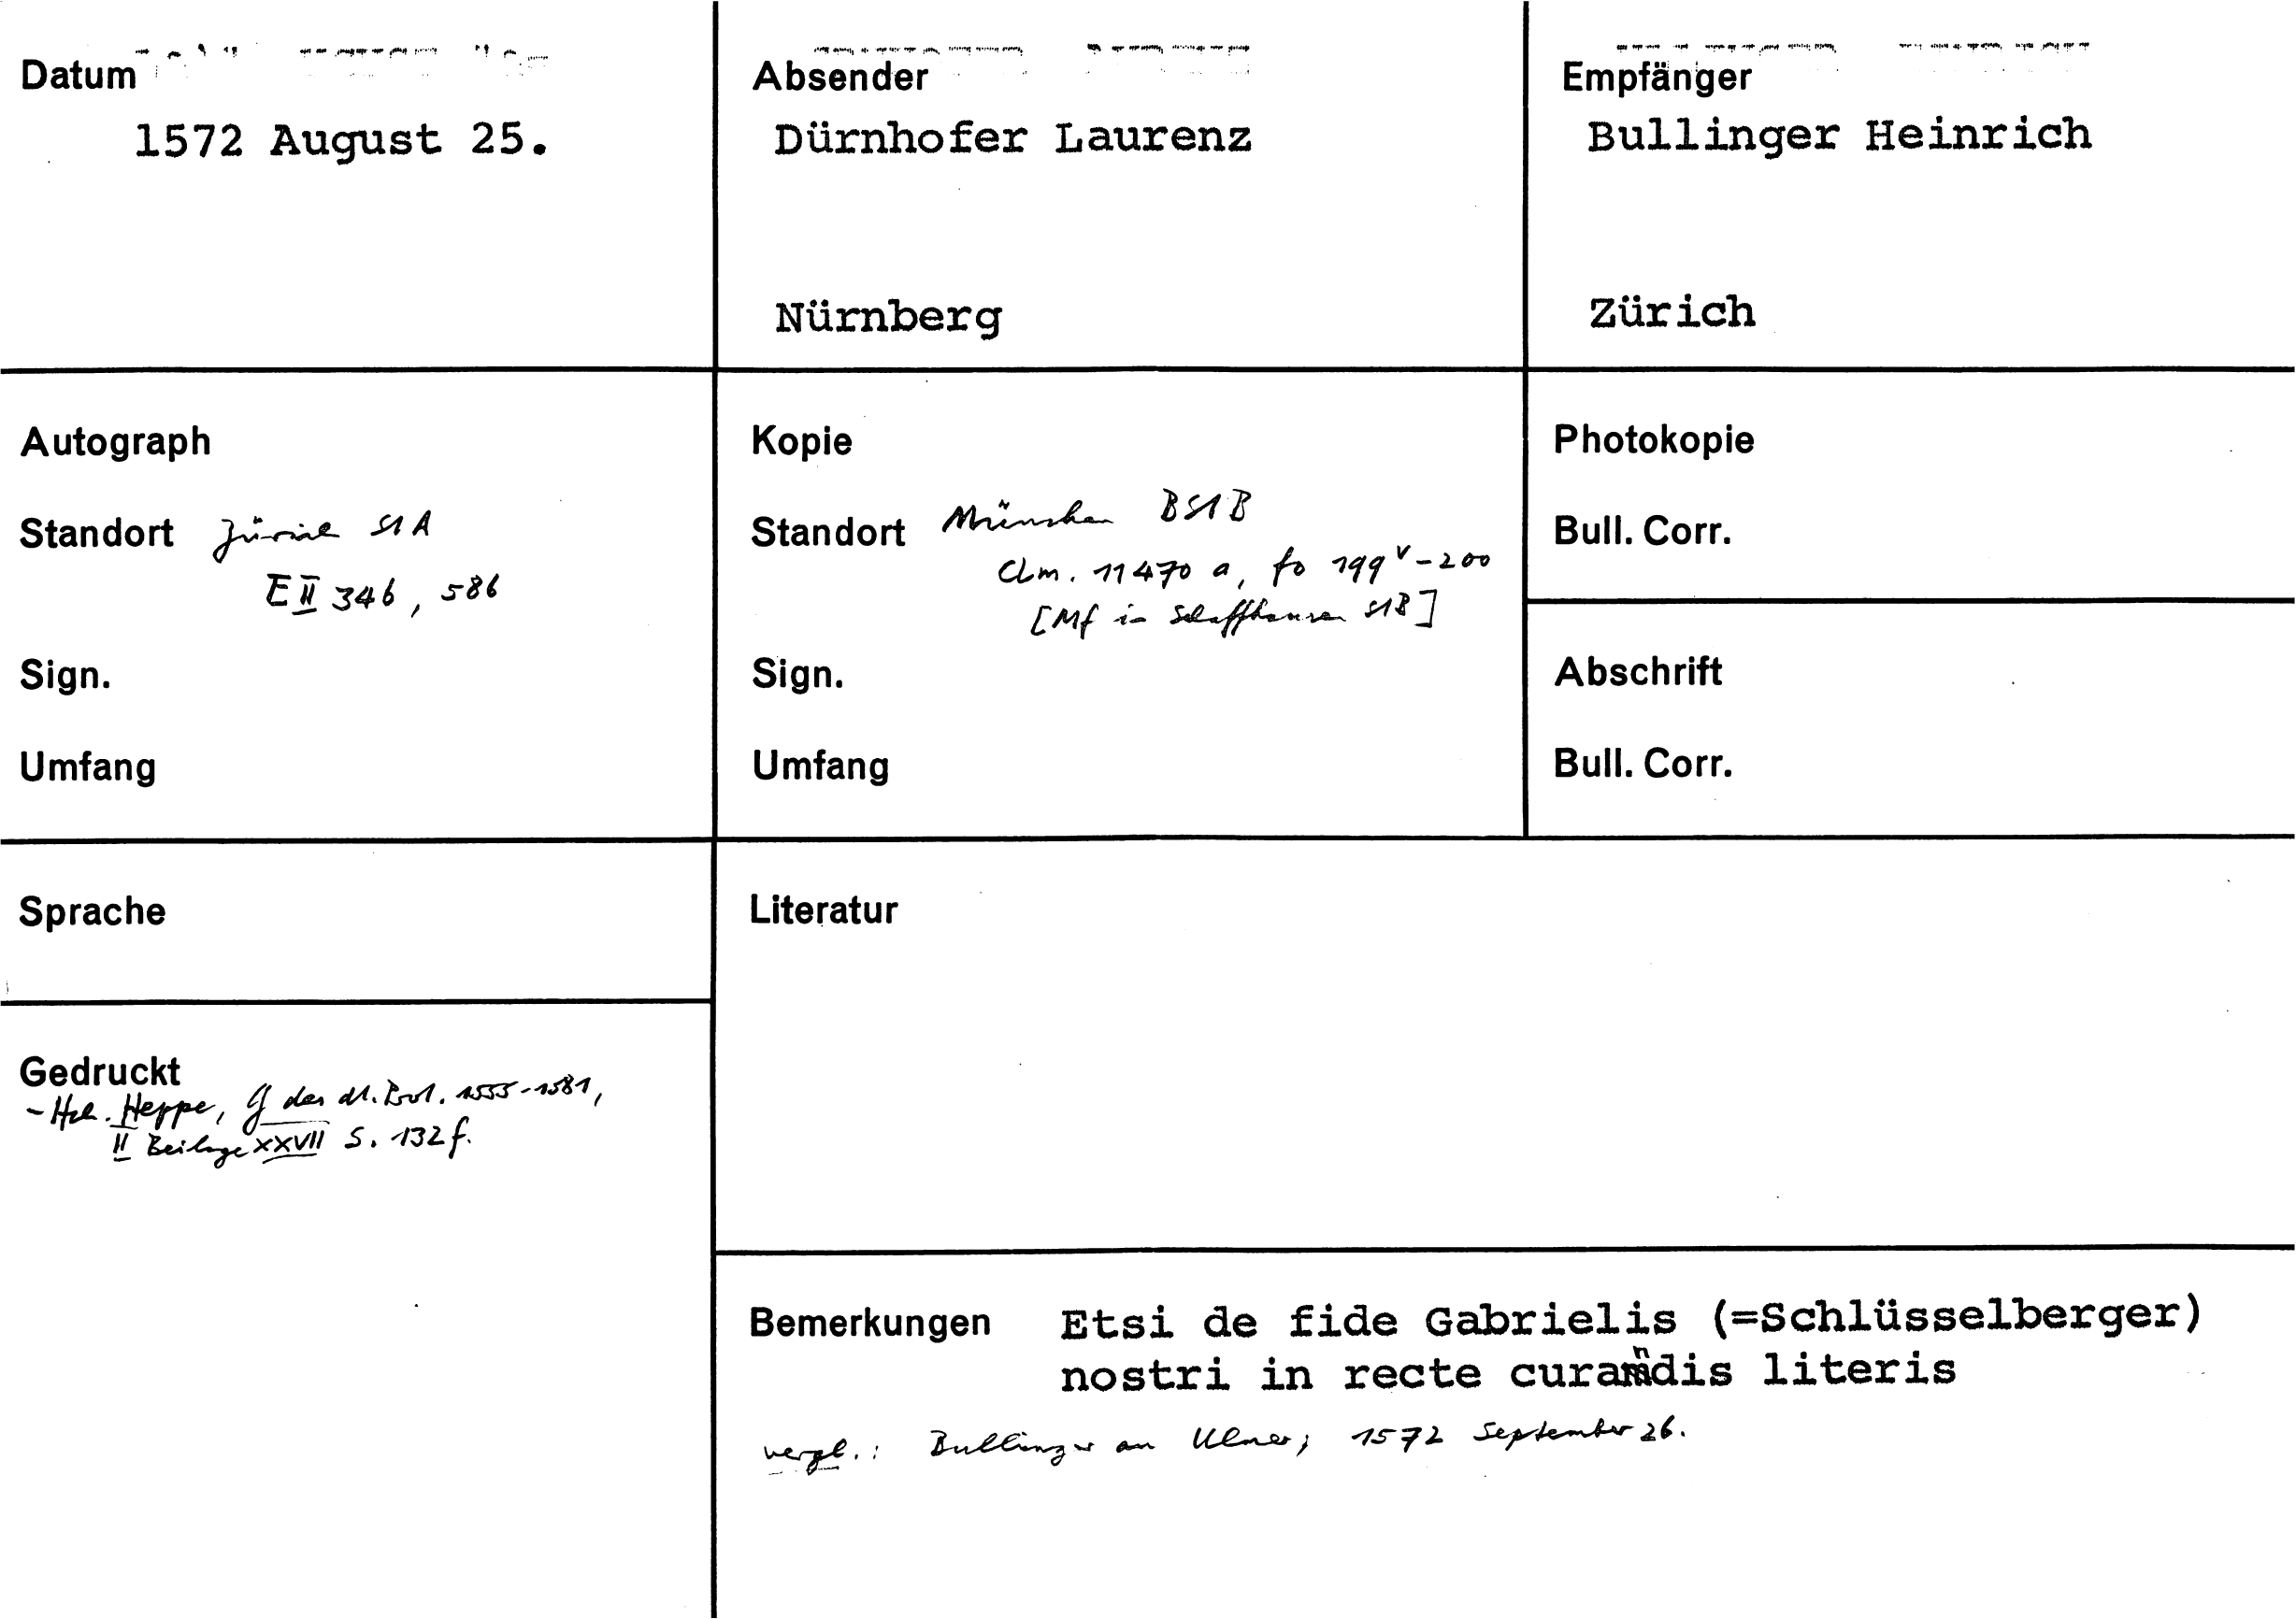 Datum
1572 August 25.
Absender
Dürnhofer Laurenz
Nürnberg
Empfänger
Bullinger Heinrich
Zürich
Autograph
Standort Zürich StA
E II 346, 586
Sign.
Umfang
Kopie
Standort München BStB
Clm. 11470 a, fo 199v-200
[Mf in Schaffhausen StB]
Sign.
Umfang
Photokopie
Bull. Corr.
Abschrift
Bull. Corr.
Sprache
Literatur
Gedruckt
- Hch. Heppe, G des dt. Prot. 1555-1581,
II Beilage XXVII S. 132 f.
Bemerkungen Etsi de fide Gabrielis (=Schlüsselberger)
nostri in recte curandis literis
vergl.: Bullinger an Ulmer, 1572 September 26.